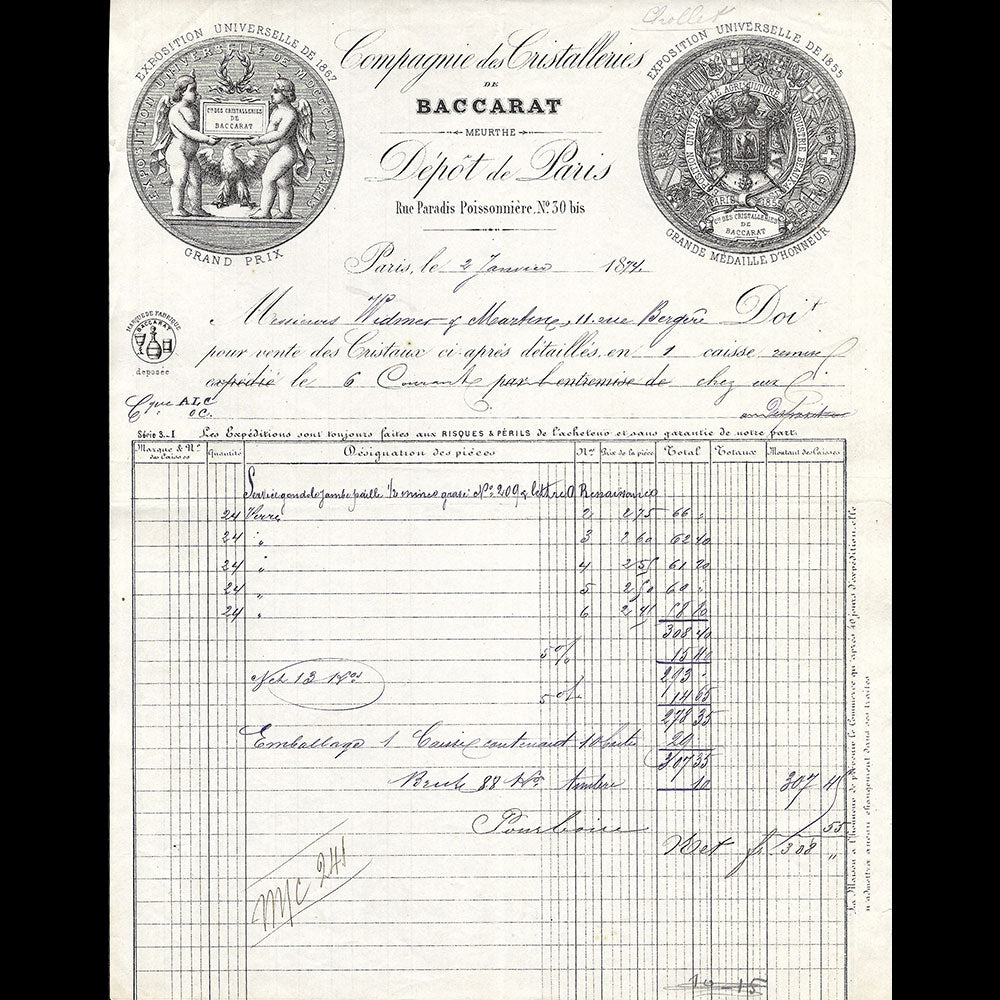 Chollet
EXPOSITION UNIVERSELLE DE 1867
EXPOSITION UNIVERSELLE DE MDCCCLXVII A PARIS
Cie DES CRISTALLERIES
DE
BACCARAT
GRAND PRIX
Compagnie des Cristalleries
DE
BACCARAT
MEURTHE
Dépôt de Paris
Rue Paradis Poissonnière, No. 30 bis
EXPOSITION UNIVERSELLE DE 1855
AGRICULTURE INDUSTRIE BEAUX
PARIS 1855
Cie DES CRISTALLERIES
DE
BACCARAT
GRANDE MÉDAILLE D'HONNEUR
Paris, le 2 Janvier 1874
MARQUE DE FABRIQUE
BACCARAT
déposée
Messieurs Widmer & Martin, 11, rue Bergère Doit
pour vente des Cristaux ci-après détaillés, en 1 caisse remise
expédié le 6 Courant par l'entremise de chez eux
ALC
OC.
Série 3.-I Les Expéditions sont toujours faites aux RISQUES & PÉRILS de l'acheteur et sans garantie de notre part.
Marque & No. des Caisses Quantité Désignation des pièces Nos Prix de la pièce Total Totaux Montant des Caisses
Service gondole jambe paille 1/2 mince gravé No. 209 & lettre O Renaissance
24 Verres 2 2 75 66 "
24 " 3 2 60 62 40
24 " 4 2 55 61 20
24 " 5 2 50 60 "
24 " 6 2 45 58 80
308 40
5 % 15 40
Net 13 Kos 293 "
5 % 14 65
278 35
Emballage 1 Caisse contenant 10 29
307 35
Brut 88 Ko timbre 10 307 45
Pourboire 55
Net fr 308 "
M/C 241
10-15
La Maison a l'honneur de prévenir le Commerce qu'après 40 jours d'expédition, elle
n'admettra aucun changement dans ses traites